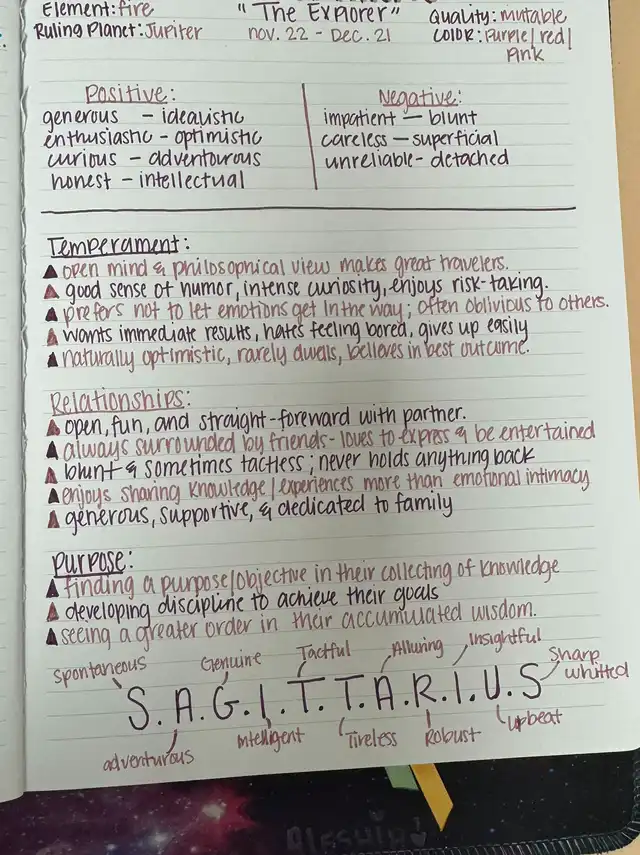 Element: fire
"The Explorer"
Quality: Mutable
Ruling Planet: Jupiter
nov. 22 - Dec. 21
COLOR: Purple/red/
Pink
Positive:
generous - idealistic
enthusiastic - optimistic
curious - adventourous
honest - intellectual
Negative:
impatient - blunt
careless - superficial
unreliable - detached
Temperament:
▲ open mind & philosophical view makes great travelers.
▲ good sense of humor, intense curiosity, enjoys risk-taking.
▲ prefers not to let emotions get in the way; often oblivious to others.
▲ wants immediate results, hates feeling bored, gives up easily
▲ naturally optimistic, rarely dwells, believes in best outcome.
Relationships:
▲ open, fun, and straight-foreward with partner.
▲ always surrounded by friends - loves to express & be entertained
▲ blunt & sometimes tactless; never holds anything back
▲ enjoys sharing knowledge/experiences more than emotional intimacy
▲ generous, supportive, & dedicated to family
Purpose:
▲ finding a purpose/objective in their collecting of knowledge
▲ developing discipline to achieve their goals
▲ seeing a greater order in their accumulated wisdom.
Spontaneous Genuine Tactful Alluring Insightful Sharp
whitted
S.A.G.I.T.T.A.R.I.U.S
adventurous Intelligent Tireless Robust upbeat